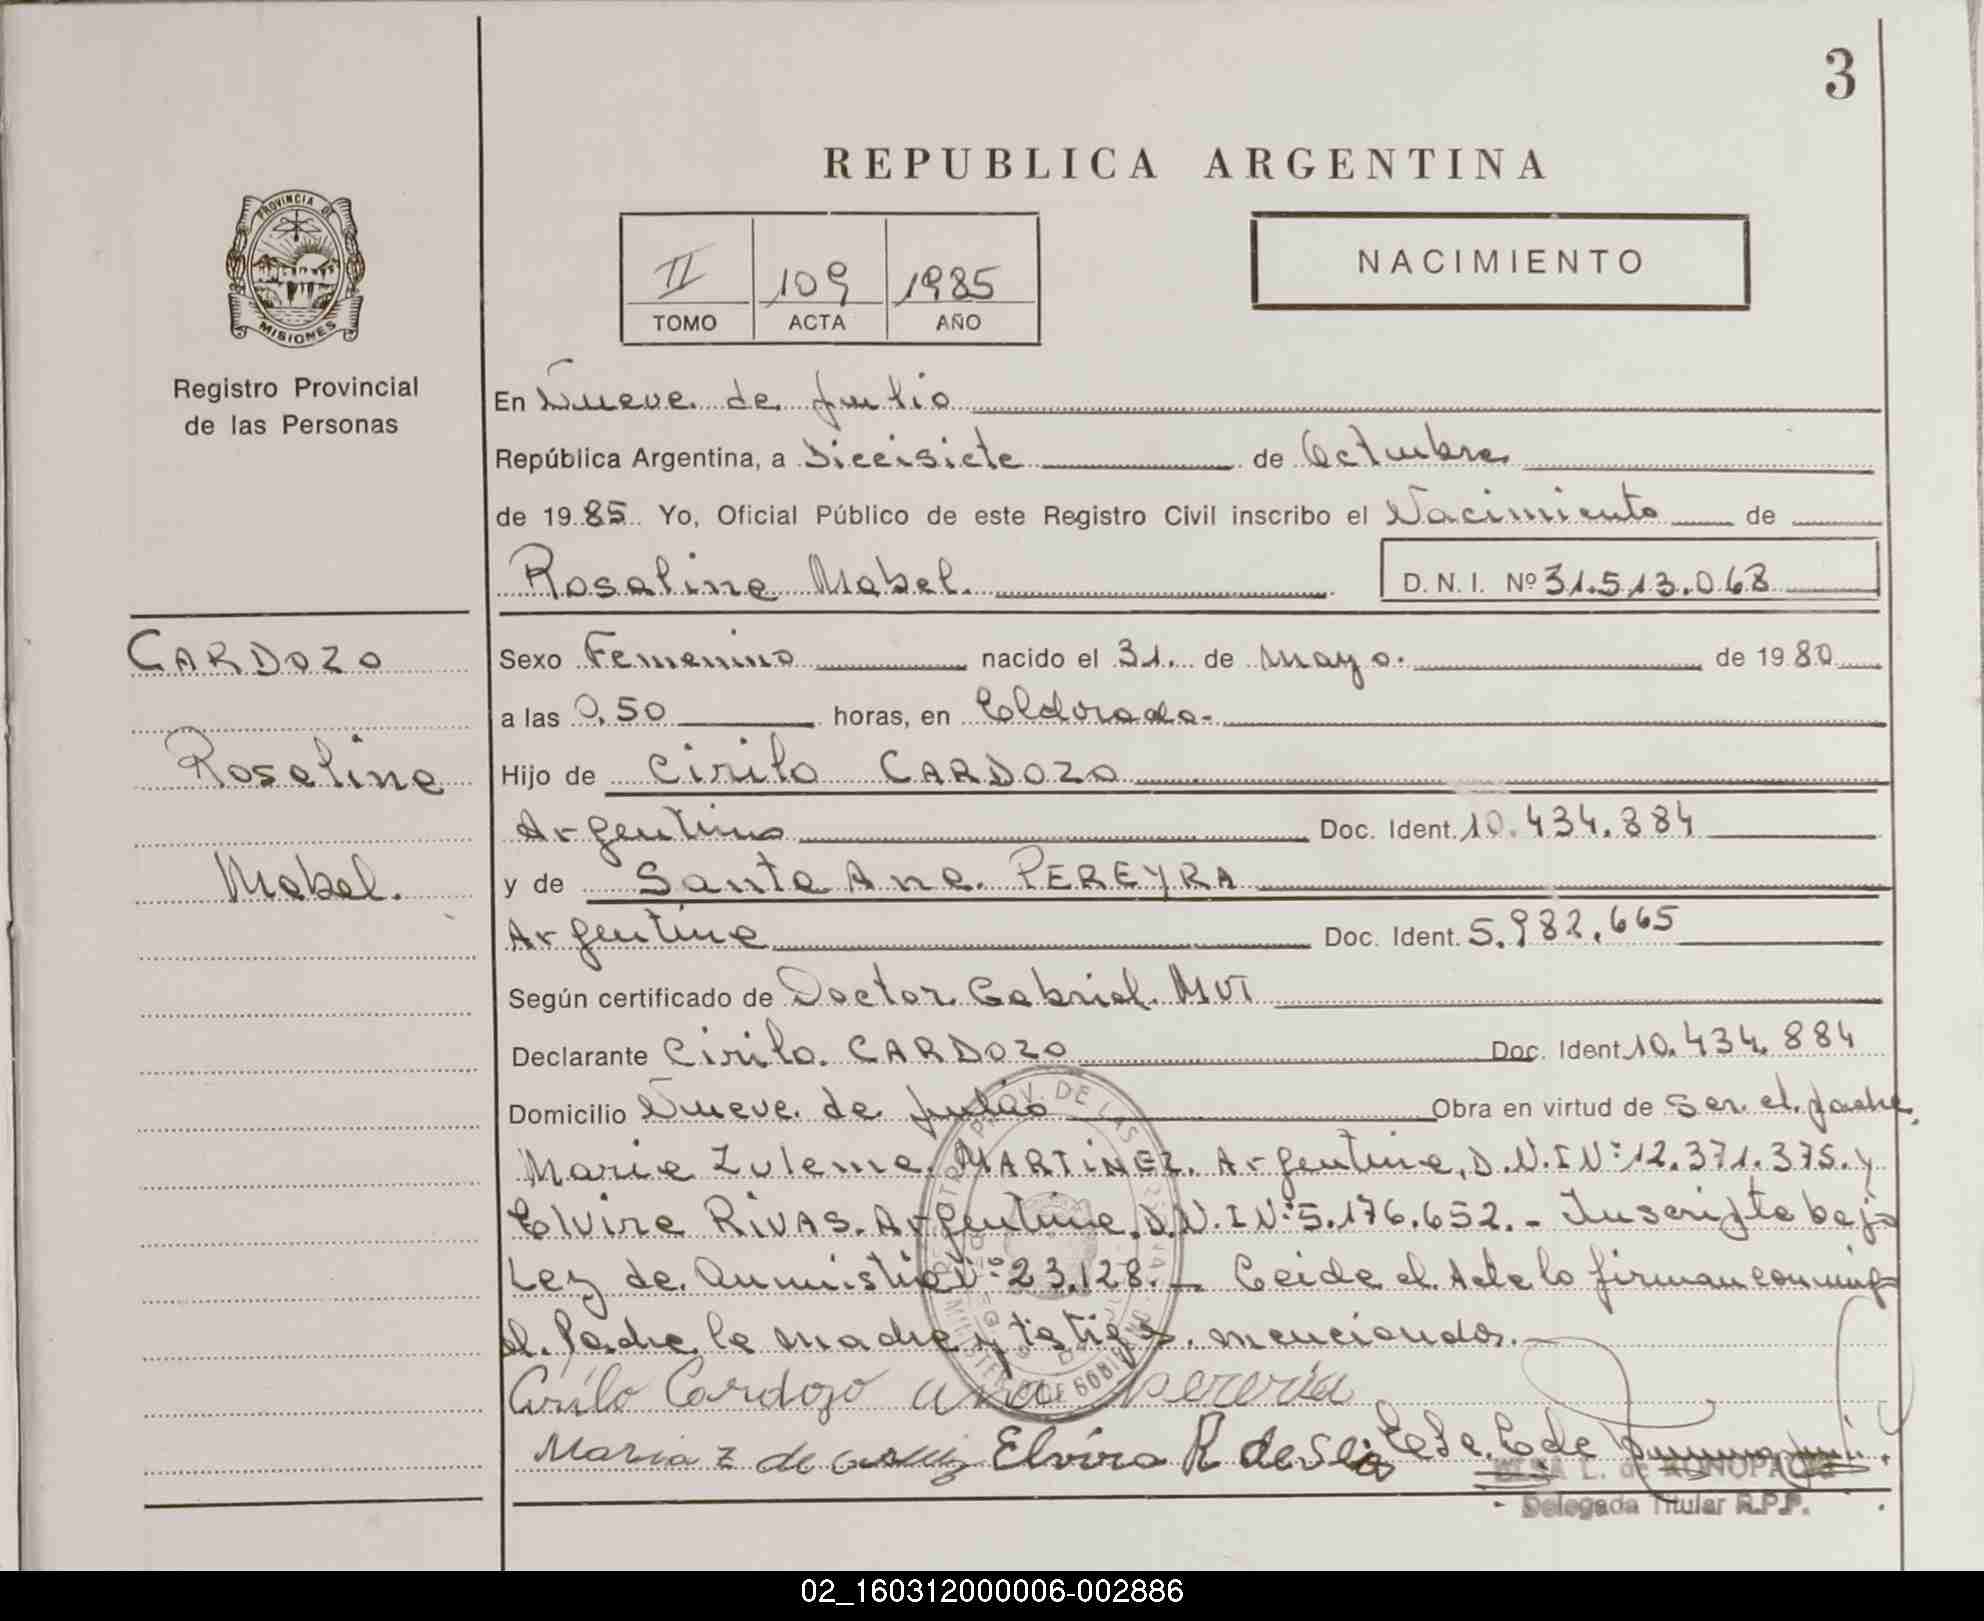 3
REPUBLICA ARGENTINA
PROVINCIA DE
MISIONES
II 109 1985
TOMO ACTA AÑO
NACIMIENTO
Registro Provincial
de las Personas
En Nueve de Julio
República Argentina, a Diecisiete de Octubre
de 1985 Yo, Oficial Público de este Registro Civil inscribo el Nacimiento de
Rosalina Mabel. D. N. I. Nº 31.513.068
CARDOZO
Rosalina
Mabel.
Sexo Femenino nacido el 31. de Mayo. de 1980
a las 0,50 horas, en Eldorado-
Hijo de Cirilo CARDOZO
Argentino Doc. Ident. 10.434.884
y de Santa Ana. PEREYRA
Argentina Doc. Ident. 5.982.665
Según certificado de Doctor Gabriel MUT
Declarante Cirilo. CARDOZO Doc. Ident. 10.434.884
Domicilio Nueve de Julio Obra en virtud de Ser el padre.
Maria Zulema. MARTINEZ. Argentina, D.N.I Nº 12.371.375. y
Elvira RIVAS. Argentina, D.N.I Nº 5.176.652.- Inscripta bajo
Ley de Anmistia Nº 23.128.- Leida el Acta lo firman conmigo
el Padre la madre y testigos mencionados.-
Cirilo Cardozo ana pereira
Maria Z de Elvira R de
ELSA L. de
Delegada Titular R.P.P.
02_160312000006-002886